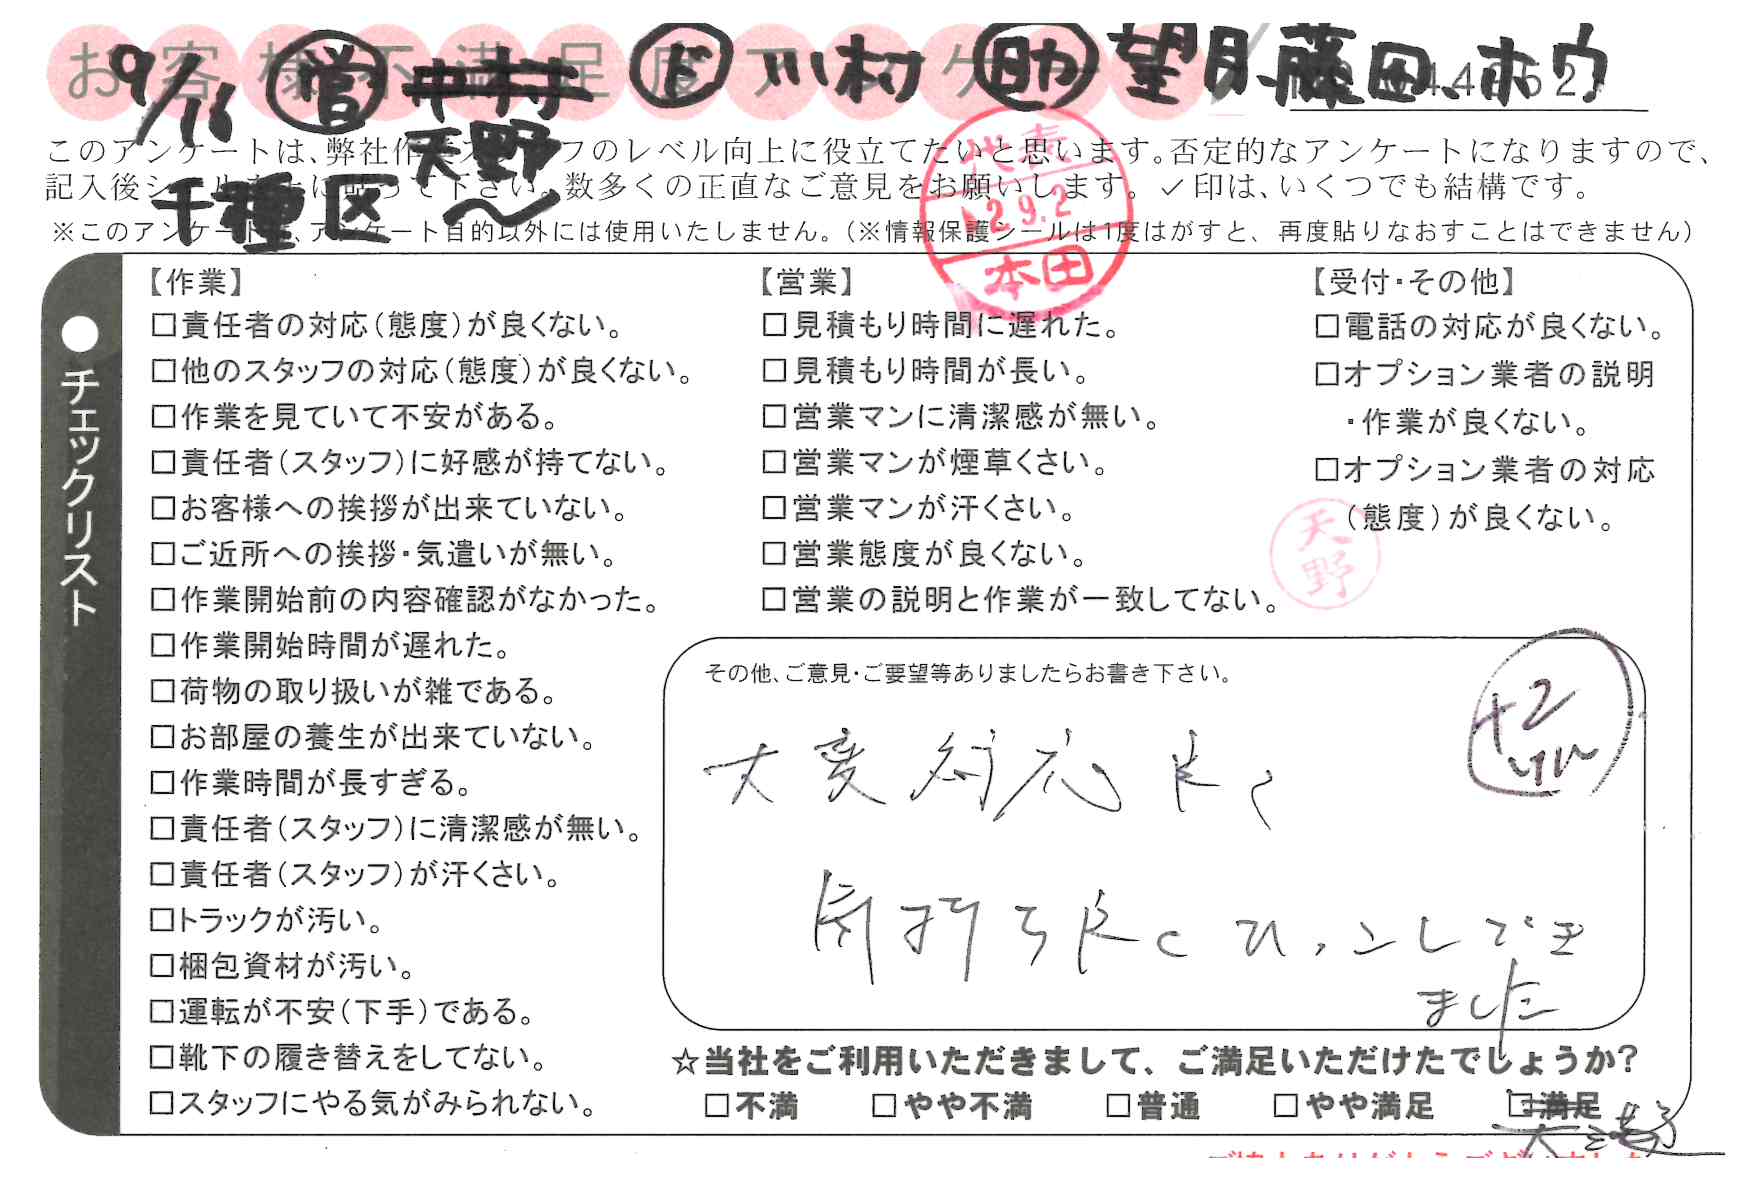 お客様不満足度アンケート
9/16 営 中村 ド 川村 助 望月、藤田、ホウ
天野
千種区〜
このアンケートは、弊社作 スタッフのレベル向上に役立てたいと思います。否定的なアンケートになりますので、
記入後シールを上に貼って下さい。数多くの正直なご意見をお願いします。✓印は、いくつでも結構です。
※このアンケートは、アンケート目的以外には使用いたしません。（※情報保護シールは1度はがすと、再度貼りなおすことはできません）
代表
29.2
本田
●チェックリスト
【作業】
□責任者の対応（態度）が良くない。
□他のスタッフの対応（態度）が良くない。
□作業を見ていて不安がある。
□責任者（スタッフ）に好感が持てない。
□お客様への挨拶が出来ていない。
□ご近所への挨拶・気遣いが無い。
□作業開始前の内容確認がなかった。
□作業開始時間が遅れた。
□荷物の取り扱いが雑である。
□お部屋の養生が出来ていない。
□作業時間が長すぎる。
□責任者（スタッフ）に清潔感が無い。
□責任者（スタッフ）が汗くさい。
□トラックが汚い。
□梱包資材が汚い。
□運転が不安（下手）である。
□靴下の履き替えをしてない。
□スタッフにやる気がみられない。
【営業】
□見積もり時間に遅れた。
□見積もり時間が長い。
□営業マンに清潔感が無い。
□営業マンが煙草くさい。
□営業マンが汗くさい。
□営業態度が良くない。
□営業の説明と作業が一致してない。
【受付・その他】
□電話の対応が良くない。
□オプション業者の説明
・作業が良くない。
□オプション業者の対応
（態度）が良くない。
天野
その他、ご意見・ご要望等ありましたらお書き下さい。
+2
大変対応良く
気持ち良くひっこしでき
ました
☆当社をご利用いただきまして、ご満足いただけたでしょうか？
□不満 □やや不満 □普通 □やや満足 □満足
大満足